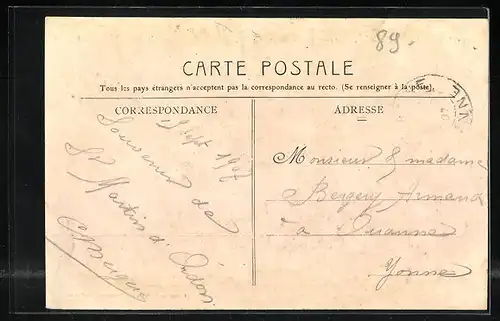 89.
CARTE POSTALE
Tous les pays étrangers n'acceptent pas la correspondance au recto. (Se renseigner à la poste).
CORRESPONDANCE
Sept 1907
Souvenir de
St Martin d'Ordon
ADRESSE
Monsieur & madame
Bergery Armand
à Ouanne
Yonne